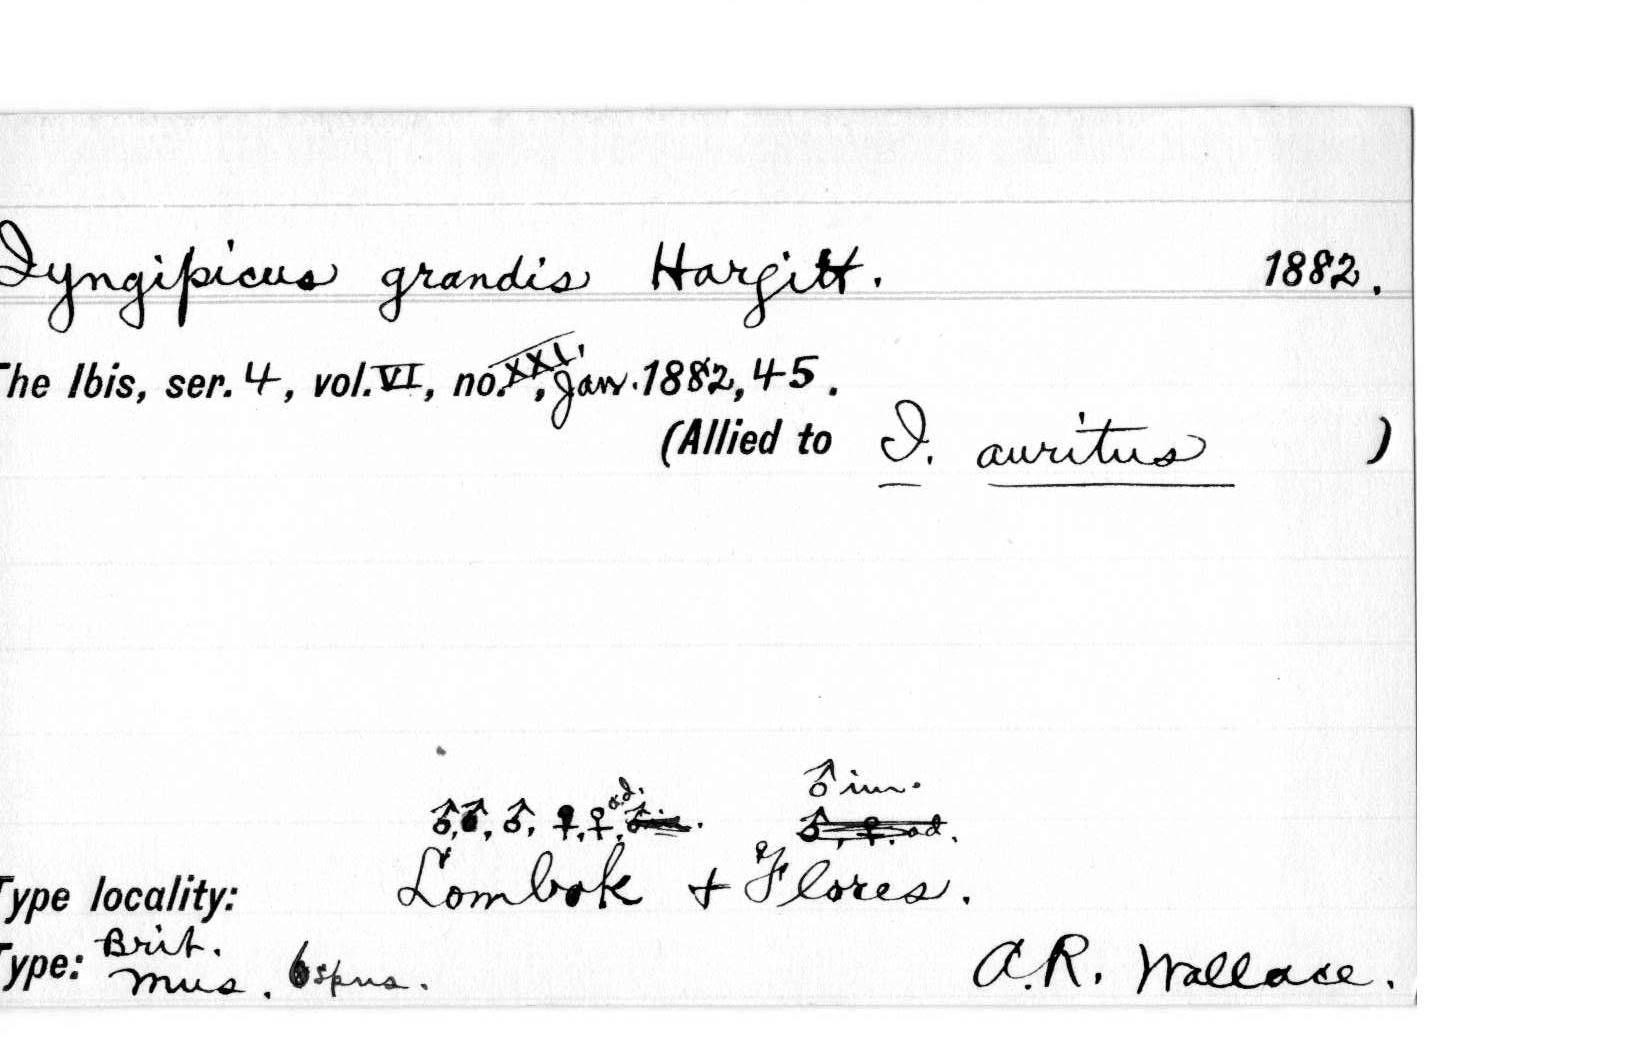 Iyngipicus grandis Hargitt. 1882.
The Ibis, ser. 4, vol. VI, no. XXI, Jan. 1882, 45.
(Allied to I. auritus )
♂ im.
♂, ♂, ♂, ♀, ♀ ad. ♂, ♀. ad.
Lombok + Flores.
Type locality:
Type: Brit. Mus. 6 spms. A.R. Wallace.